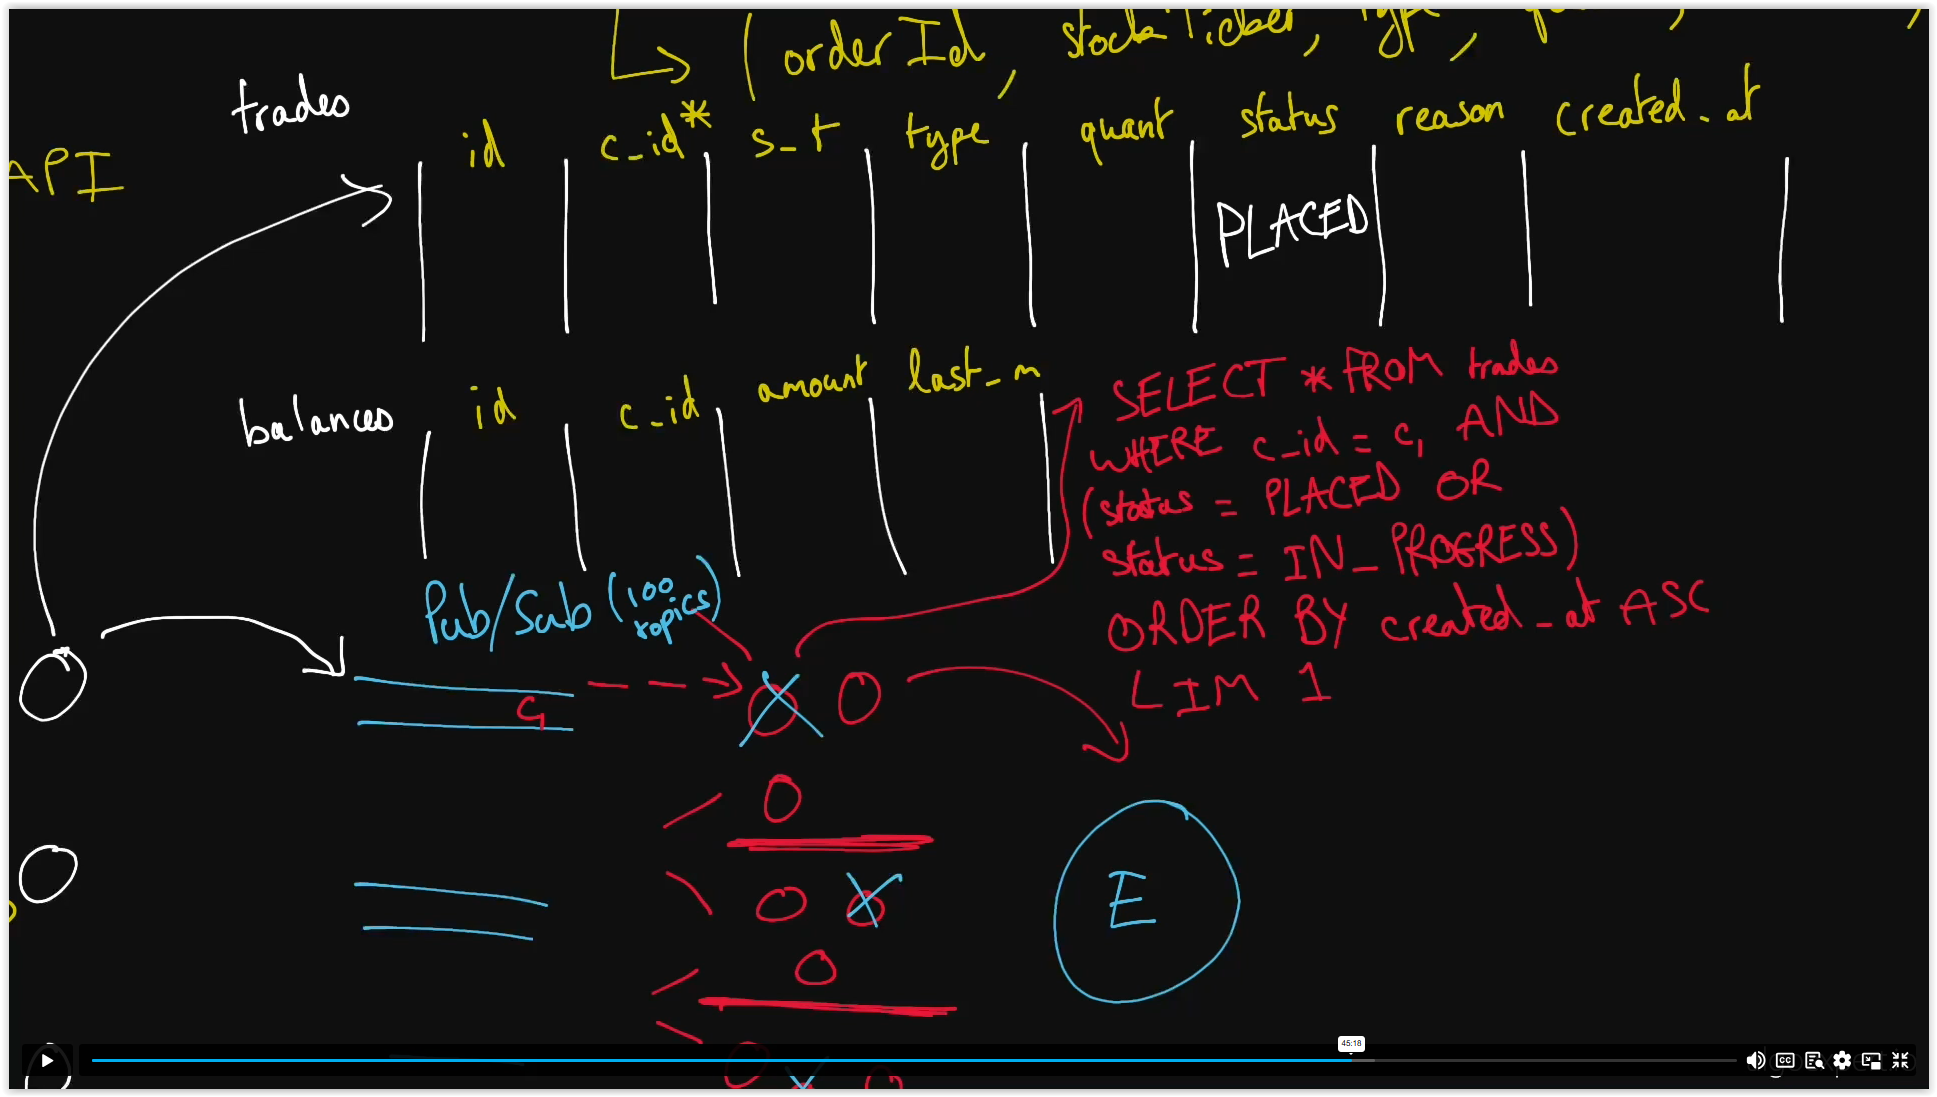 ( orderId, stockTicker, type,
trades
id c_id* s_t type quant status reason created_at
API
PLACED
balances id c_id amount last_m
SELECT * FROM trades
WHERE c_id = c1 AND
(status = PLACED OR
status = IN_PROGRESS)
ORDER BY created_at ASC
LIM 1
Pub/Sub (100
topics)
C1
E
45:18
CC